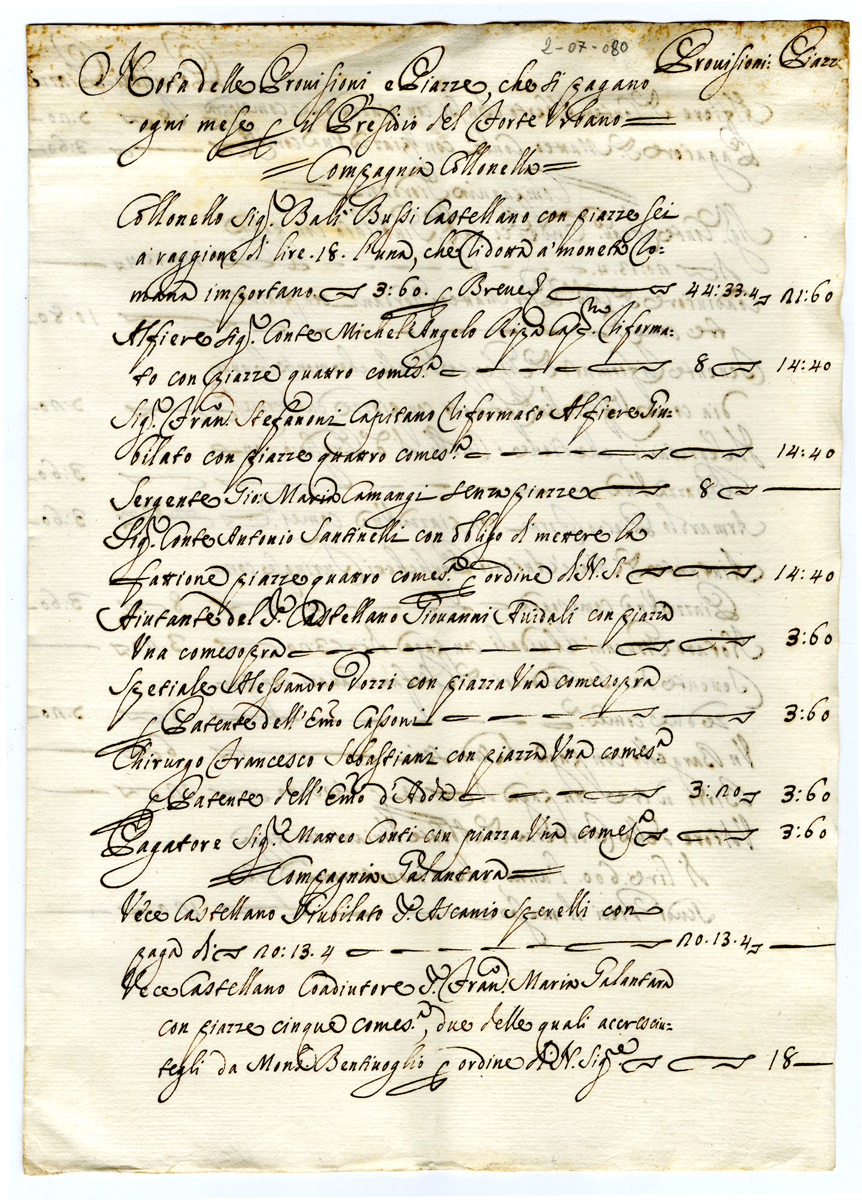 2-07-080
Provisioni: Piazz
Nota delle Provisioni, e Piazze, che si pagano
ogni mese p il Presidio del Forte Urbano
Compagnia Collonella
Collonello Sigr Bali Bussi Castellano con piazze sei
a raggione di lire .18. l'una, che ridotta a' moneta Ro-
mana importano 3:60. p Breve 44:33.4 21:60
Alfiere Sigr Conte Michel'Angelo Ripa Capno riforma:
to con piazze quattro comes.a 8 14:40
Sigr Franco Stefanoni Capitano riformato Alfiere Giu-
bilato con piazze quattro comes.a 14:40
Sergente Gio: Maria Camangi senza piazze 8
Sigr Conte Antonio Santinelli con obligo di mettere la
fattione piazze quattro comes.a p ordine di N. S. 14:40
Aiutante del Sr Castellano Giovanni Avidali con piazza
una comesopra 3:60
Spetiale Alessandro Pozzi con piazza una comesopra
p Patente dell'Emo Cassoni 3:60
Chirurgo Francesco Sebastiani con piazza una comes.a
p Patente dell'Emo d'Adda 3:20 3:60
Pagatore Sigr Matteo Conti con piazza una comes.a 3:60
Compagnia Galantara
Vece Castellano Giubilato Sr Ascanio Sperelli con
paga di 20:13.4 20.13.4
Vece Castellano Coadiutore Sr Franco Maria Galantara
con piazze cinque comes.a, due delle quali accresciu-
tegli da Monsr Bentivoglio p ordine di N. Sigre 18